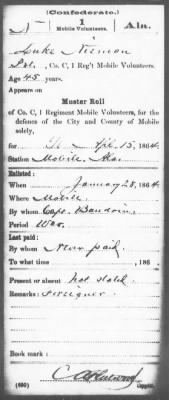 (Confederate.)
1 Ala.
Mobile Volunteers.
Luke
, Co. C, 1 Reg't Mobile Volunteers.
Age 45 years.
Appears on
Muster Roll
of Co. C, 1 Regiment Mobile Volunteers, for the
defence of the City and County of Mobile
solely,
for to Apr. 15, 1864.
Station Mobile, Ala.
Enlisted:
When January 28, 1864.
Where Mobile.
By whom Capt. Baudoin,
Period War.
Last paid:
By whom Never paid.
To what time , 186 .
Present or absent Not stated.
Remarks: Foreigner.
Book mark:
(650) Copyist.